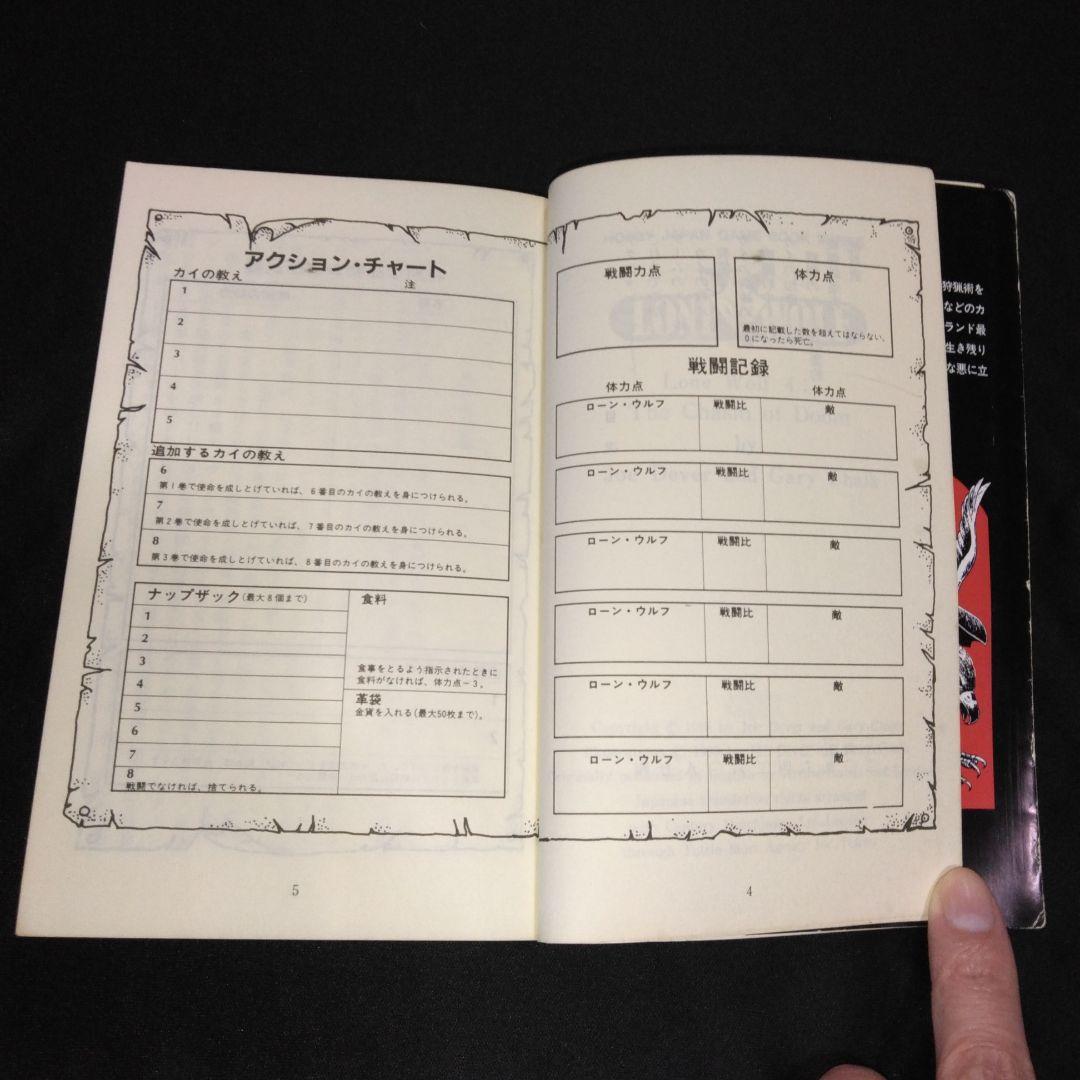 アクション・チャート
カイの教え
注
1
2
3
4
5
追加するカイの教え
6
第1巻で使命を成しとげていれば、6番目のカイの教えを身につけられる。
7
第2巻で使命を成しとげていれば、7番目のカイの教えを身につけられる。
8
第3巻で使命を成しとげていれば、8番目のカイの教えを身につけられる。
ナップザック(最大8個まで)
1
2
3
4
5
6
7
8
戦闘でなければ、捨てられる。
食料
食事をとるよう指示されたときに
食料がなければ、体力点-3。
革袋
金貨を入れる(最大50枚まで)。
5
戦闘力点
体力点
最初に記載した数を超えてはならない。
0になったら死亡。
戦闘記録
体力点 体力点
ローン・ウルフ 戦闘比 敵
ローン・ウルフ 戦闘比 敵
ローン・ウルフ 戦闘比 敵
ローン・ウルフ 戦闘比 敵
ローン・ウルフ 戦闘比 敵
ローン・ウルフ 戦闘比 敵
4
Lone Wolf 4
The Chasm of Doom
by
狩猟術を
などのカ
ランド最
生き残り
な悪に立